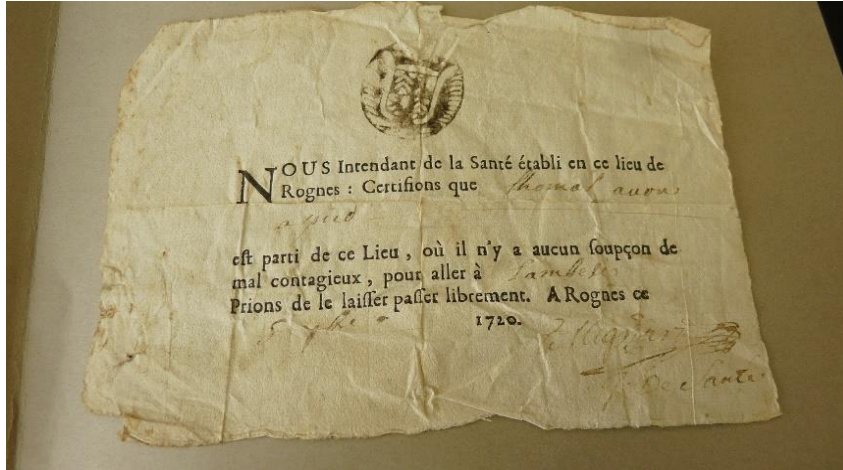 NOUS Intendant de la Santé établi en ce lieu de
Rognes : Certifions que thomas
a pied
eſt parti de ce Lieu , où il n'y a aucun ſoupçon de
mal contagieux , pour aller à Lambesc
Prions de le laiſſer paſſer librement. A Rognes ce
1720.
De Santé